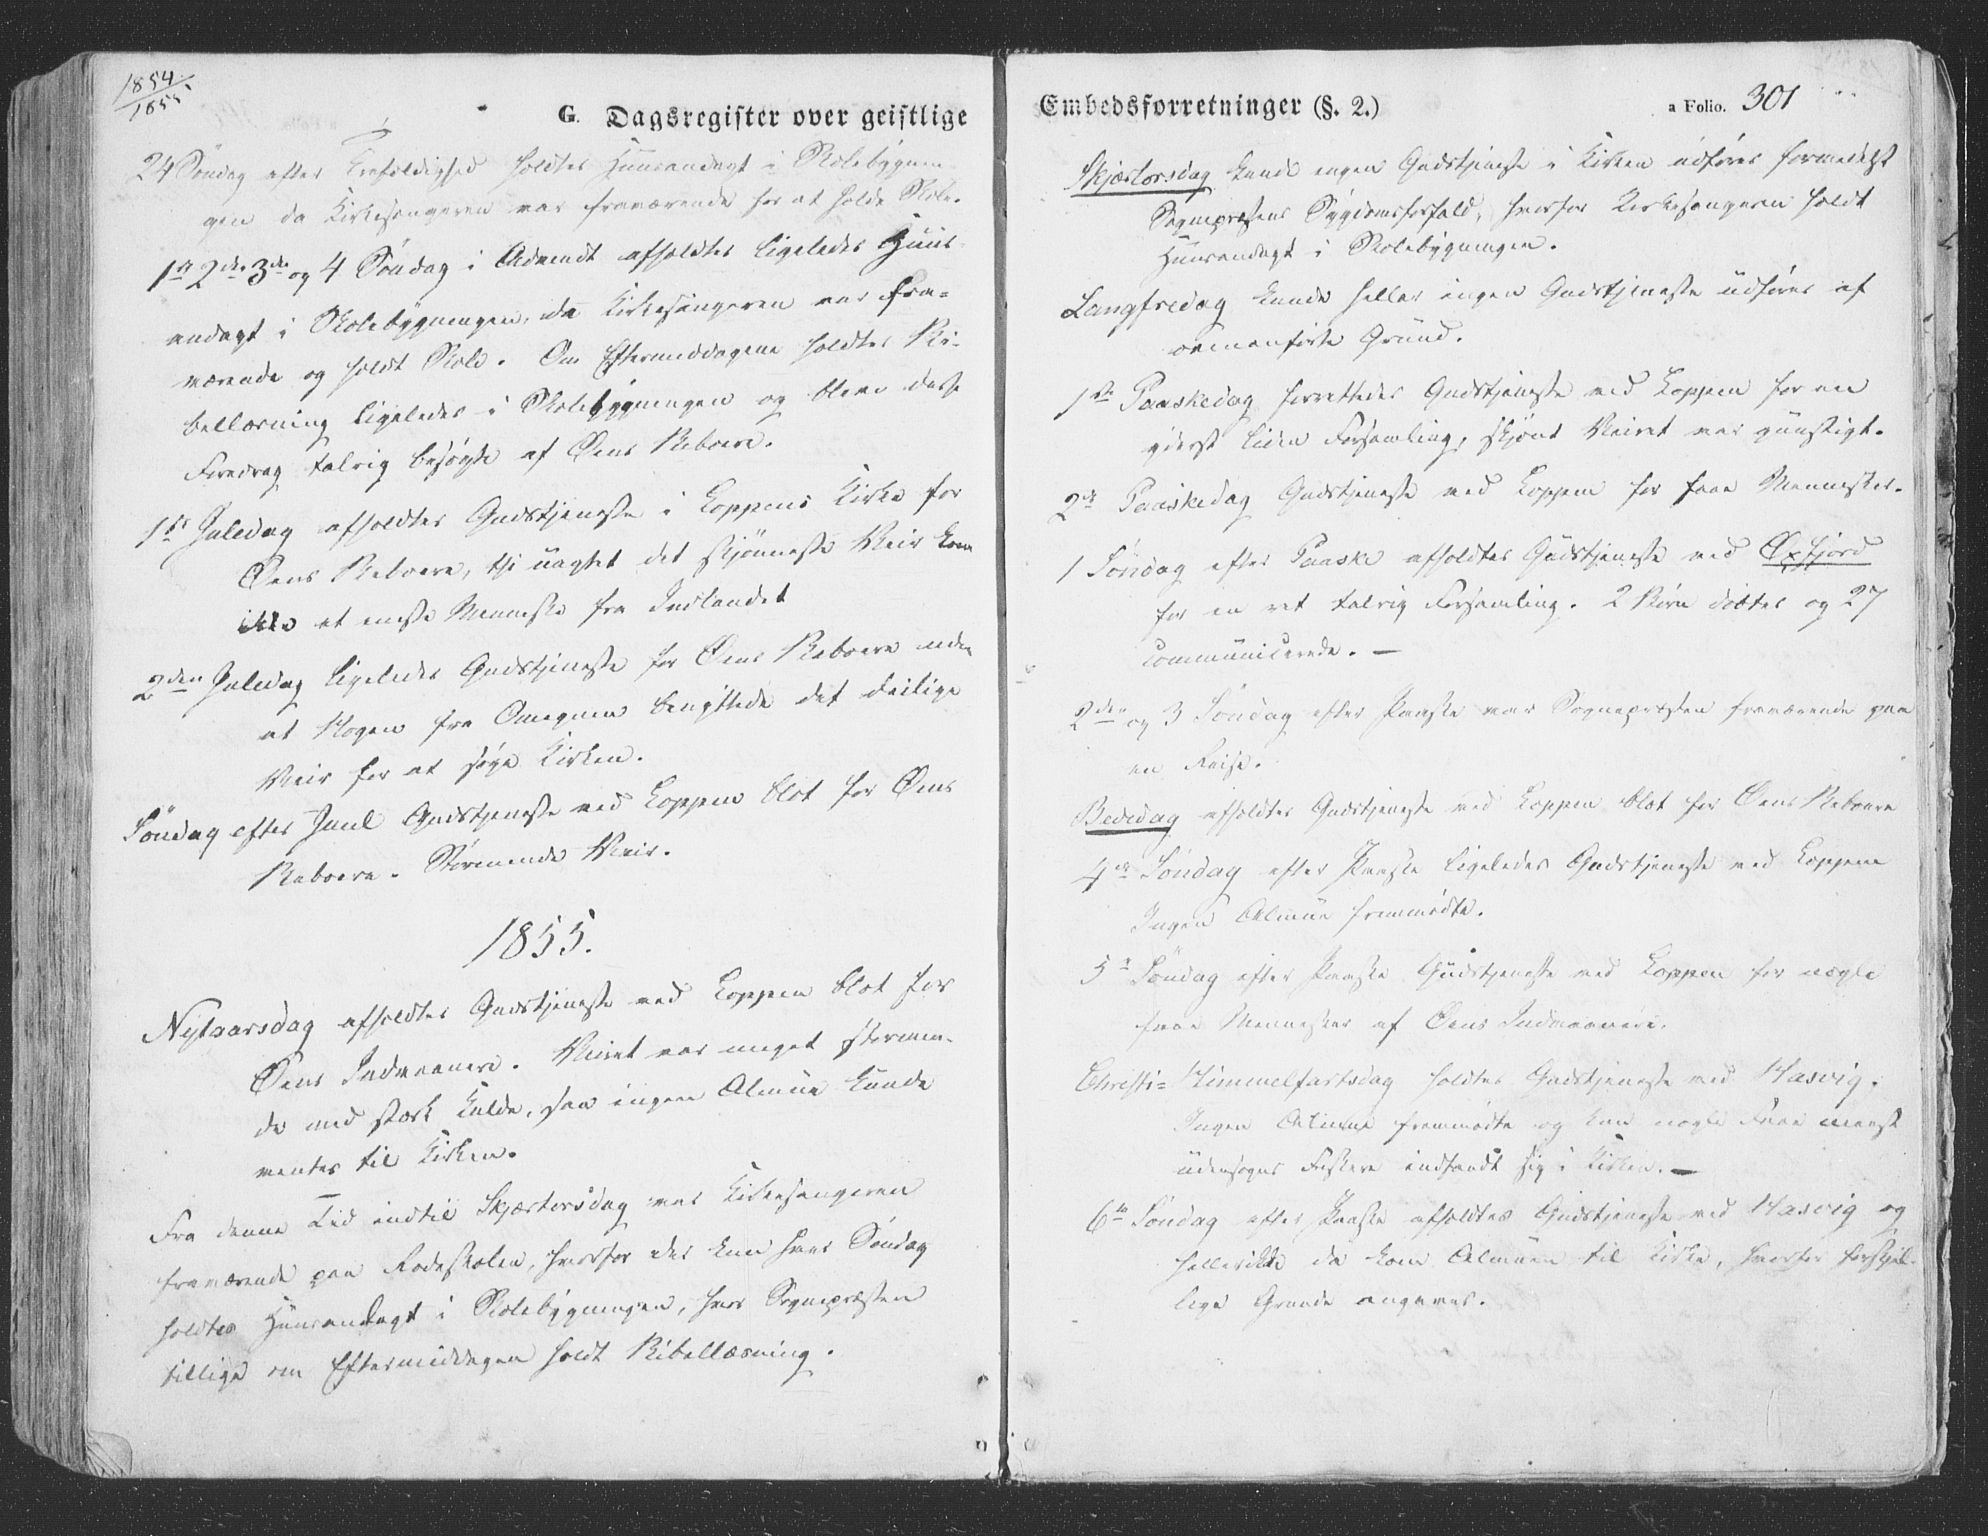 1854
1855
G. Dagsregister over geistlige
24 Søndag efter Trefoldighed holdtes Huusandagt i Skolebygnin-
gen da Kirkesangeren var fraværende for at holde Skole.
1ste 2den 3die og 4 Søndag i Advendt afholdtes ligeledes Huus-
andagt i Skolebygningen, da Kirkesangeren var fra-
værende og holdt Skole. Om Eftermiddagene holdtes Bi-
bellæsning ligeledes i Skolebygningen og bleve disse
Foredrag talrig besøgte af Øens Beboere.
1ste Juledag afholdtes Gudstjeneste i Loppens Kirke for
Øens Beboere, thi uagtet det skjønneste Veir kom
ikke et eneste Menneske fra Indlandet
2den Juledag ligeledes Gudstjeneste for Øens Beboere uden
at Nogen fra Omegnen benyttede det deilige
Veir for at søge Kirken.
Søndag efter Juul Gudstjeneste ved Loppen blot for Øens
Beboere. Stormende Veir.
1855.
Nytaarsdag afholdtes Gudstjeneste ved Loppen blot for
Øens Indvaanere. Veiret var meget stormen-
de med stærk Kulde, saa ingen Almue kunde
ventes til Kirken.
Fra denne Tid indtil Skjærtorsdag var Kirkesangeren
fraværende paa Rodeskolen, hvorfor der kun hver Søndag
holdtes Huusandagt i Skolebygningen, hvor Sognepræsten
tillige om Eftermiddagen holdt Bibellæsning.
Embedsforretninger (§. 2.)
a Folio. 301
Skjærtorsdag kunde ingen Gudstjeneste i Kirken udføres formedelst
Sognepræstens Sygdomsforfald, hvorfor Kirkesangeren holdt
Huusandagt i Skolebygningen.
Langfredag kunde heller ingen Gudstjeneste udføres af
ovenanførte Grund.
1ste Paaskedag forrettedes Gudstjeneste ved Loppen for en
yderst liden Forsamling, skjønt Veiret var gunstigt.
2den Paaskedag Gudstjeneste ved Loppen for faae Mennesker.
1 Søndag efter Paaske afholdtes Gudstjeneste ved Øxfjord
for en ret talrig Forsamling. 2 Børn døbtes og 27
communicerede. —
2den og 3 Søndag efter Paaske var Sognepræsten fraværende paa
en Reise.
Bededag afholdtes Gudstjeneste ved Loppen blot for Øens Beboere
4de Søndag efter Paaske ligeledes Gudstjeneste ved Loppen
Ingen Almue fremmødte.
5te Søndag efter Paaske Gudstjeneste ved Loppen for nogle
faae Mennesker af Øens Indvaanere.
Christi= Himmelfartsdag holdtes Gudstjeneste ved Hasvig.
Ingen Almue fremmødte og kun nogle Faae meest
udensogns Fiskere indfandt sig i Kirken. —
6te Søndag efter Paaske afholdtes Gudstjeneste ved Hasvig og
heller ikke da kom Almuen til Kirke, hvorfor forskjel-
lige Grunde angaves.